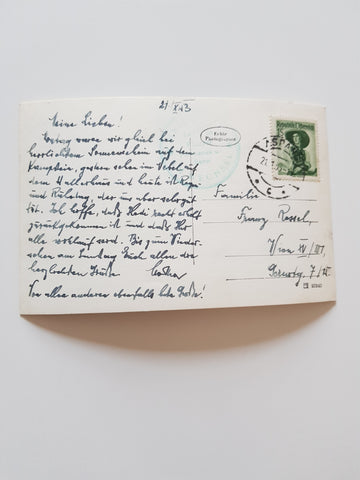 21. X. 53
Meine Lieben!
waren wir gleich bei
herrlichstem Sonnenschein auf den
Kampstein, gestern schon im Nebel auf
dem Hallerhaus und heute ist Regen
und Ruhetag, der uns aber sehr gut
tut. Ich hoffe, daß Hedi recht erholt
zurückgekommen ist und daß Ihr
alle wohlauf seid. Bis zum Wieder-
sehen am Euch allen die
herzlichsten Grüße
Von allen anderen ebenfalls liebe Grüße!
Echte
Photographie
Republik Österreich
ASPANG
Familie
Franz Rossel,
Wien
7/